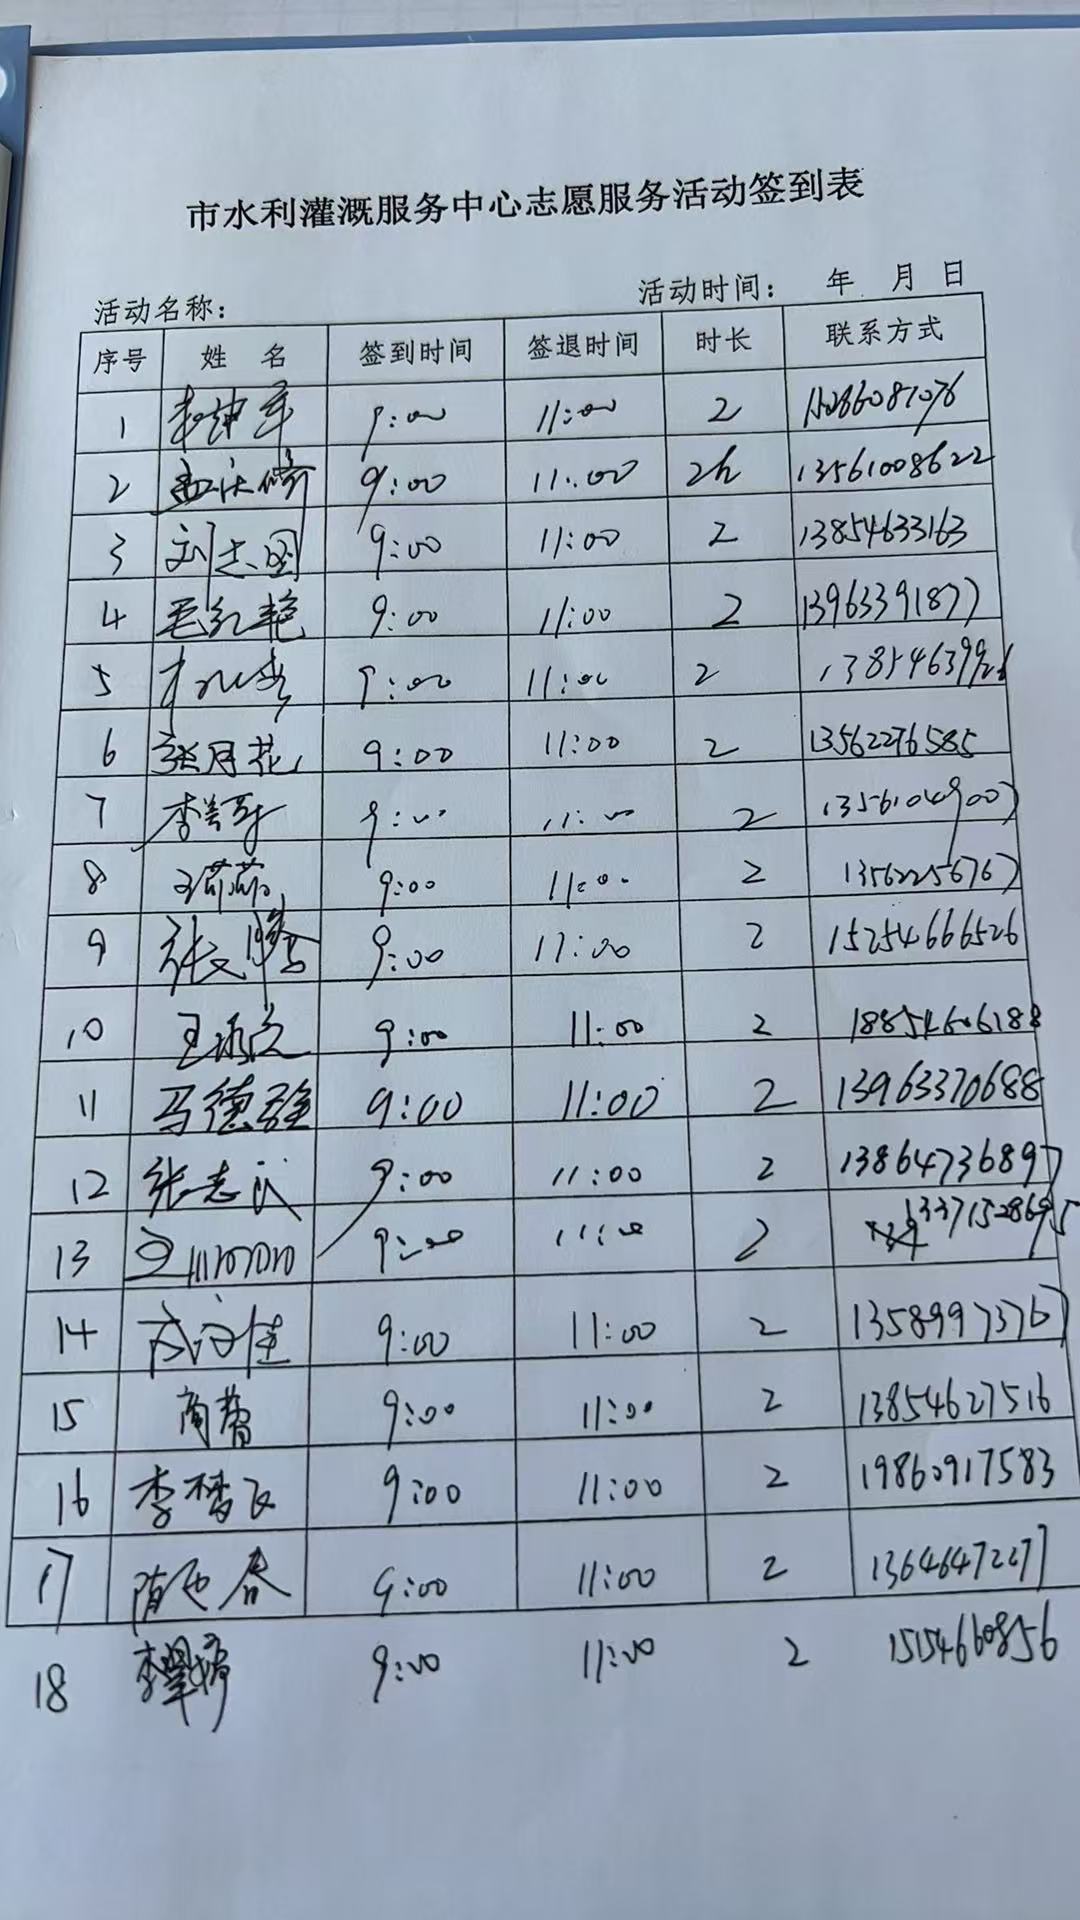 市水利灌溉服务中心志愿服务活动签到表
活动名称： 活动时间： 年 月 日
序号 姓 名 签到时间 签退时间 时长 联系方式
1 9:00 11:00 2
2 9:00 11:00 2h 13561008622
3 刘志国 9:00 11:00 2 13854633163
4 毛红艳 9:00 11:00 2 13963391877
5 9:00 11:00 2
6 张月花 9:00 11:00 2 13562276585
7 9:00 11:00 2 13561049007
8 9:00 11:00 2 13562256767
9 张文腾 9:00 11:00 2 15254666526
10 9:00 11:00 2 18854606188
11 马德强 9:00 11:00 2 13963370688
12 张志武 9:00 11:00 2 13864736897
13 9:00 11:00 2 13371528695
14 9:00 11:00 2 13589973767
15 商蕾 9:00 11:00 2 13854627516
16 李梦飞 9:00 11:00 2 19860917583
17 9:00 11:00 2
18 9:00 11:00 2 15154660856